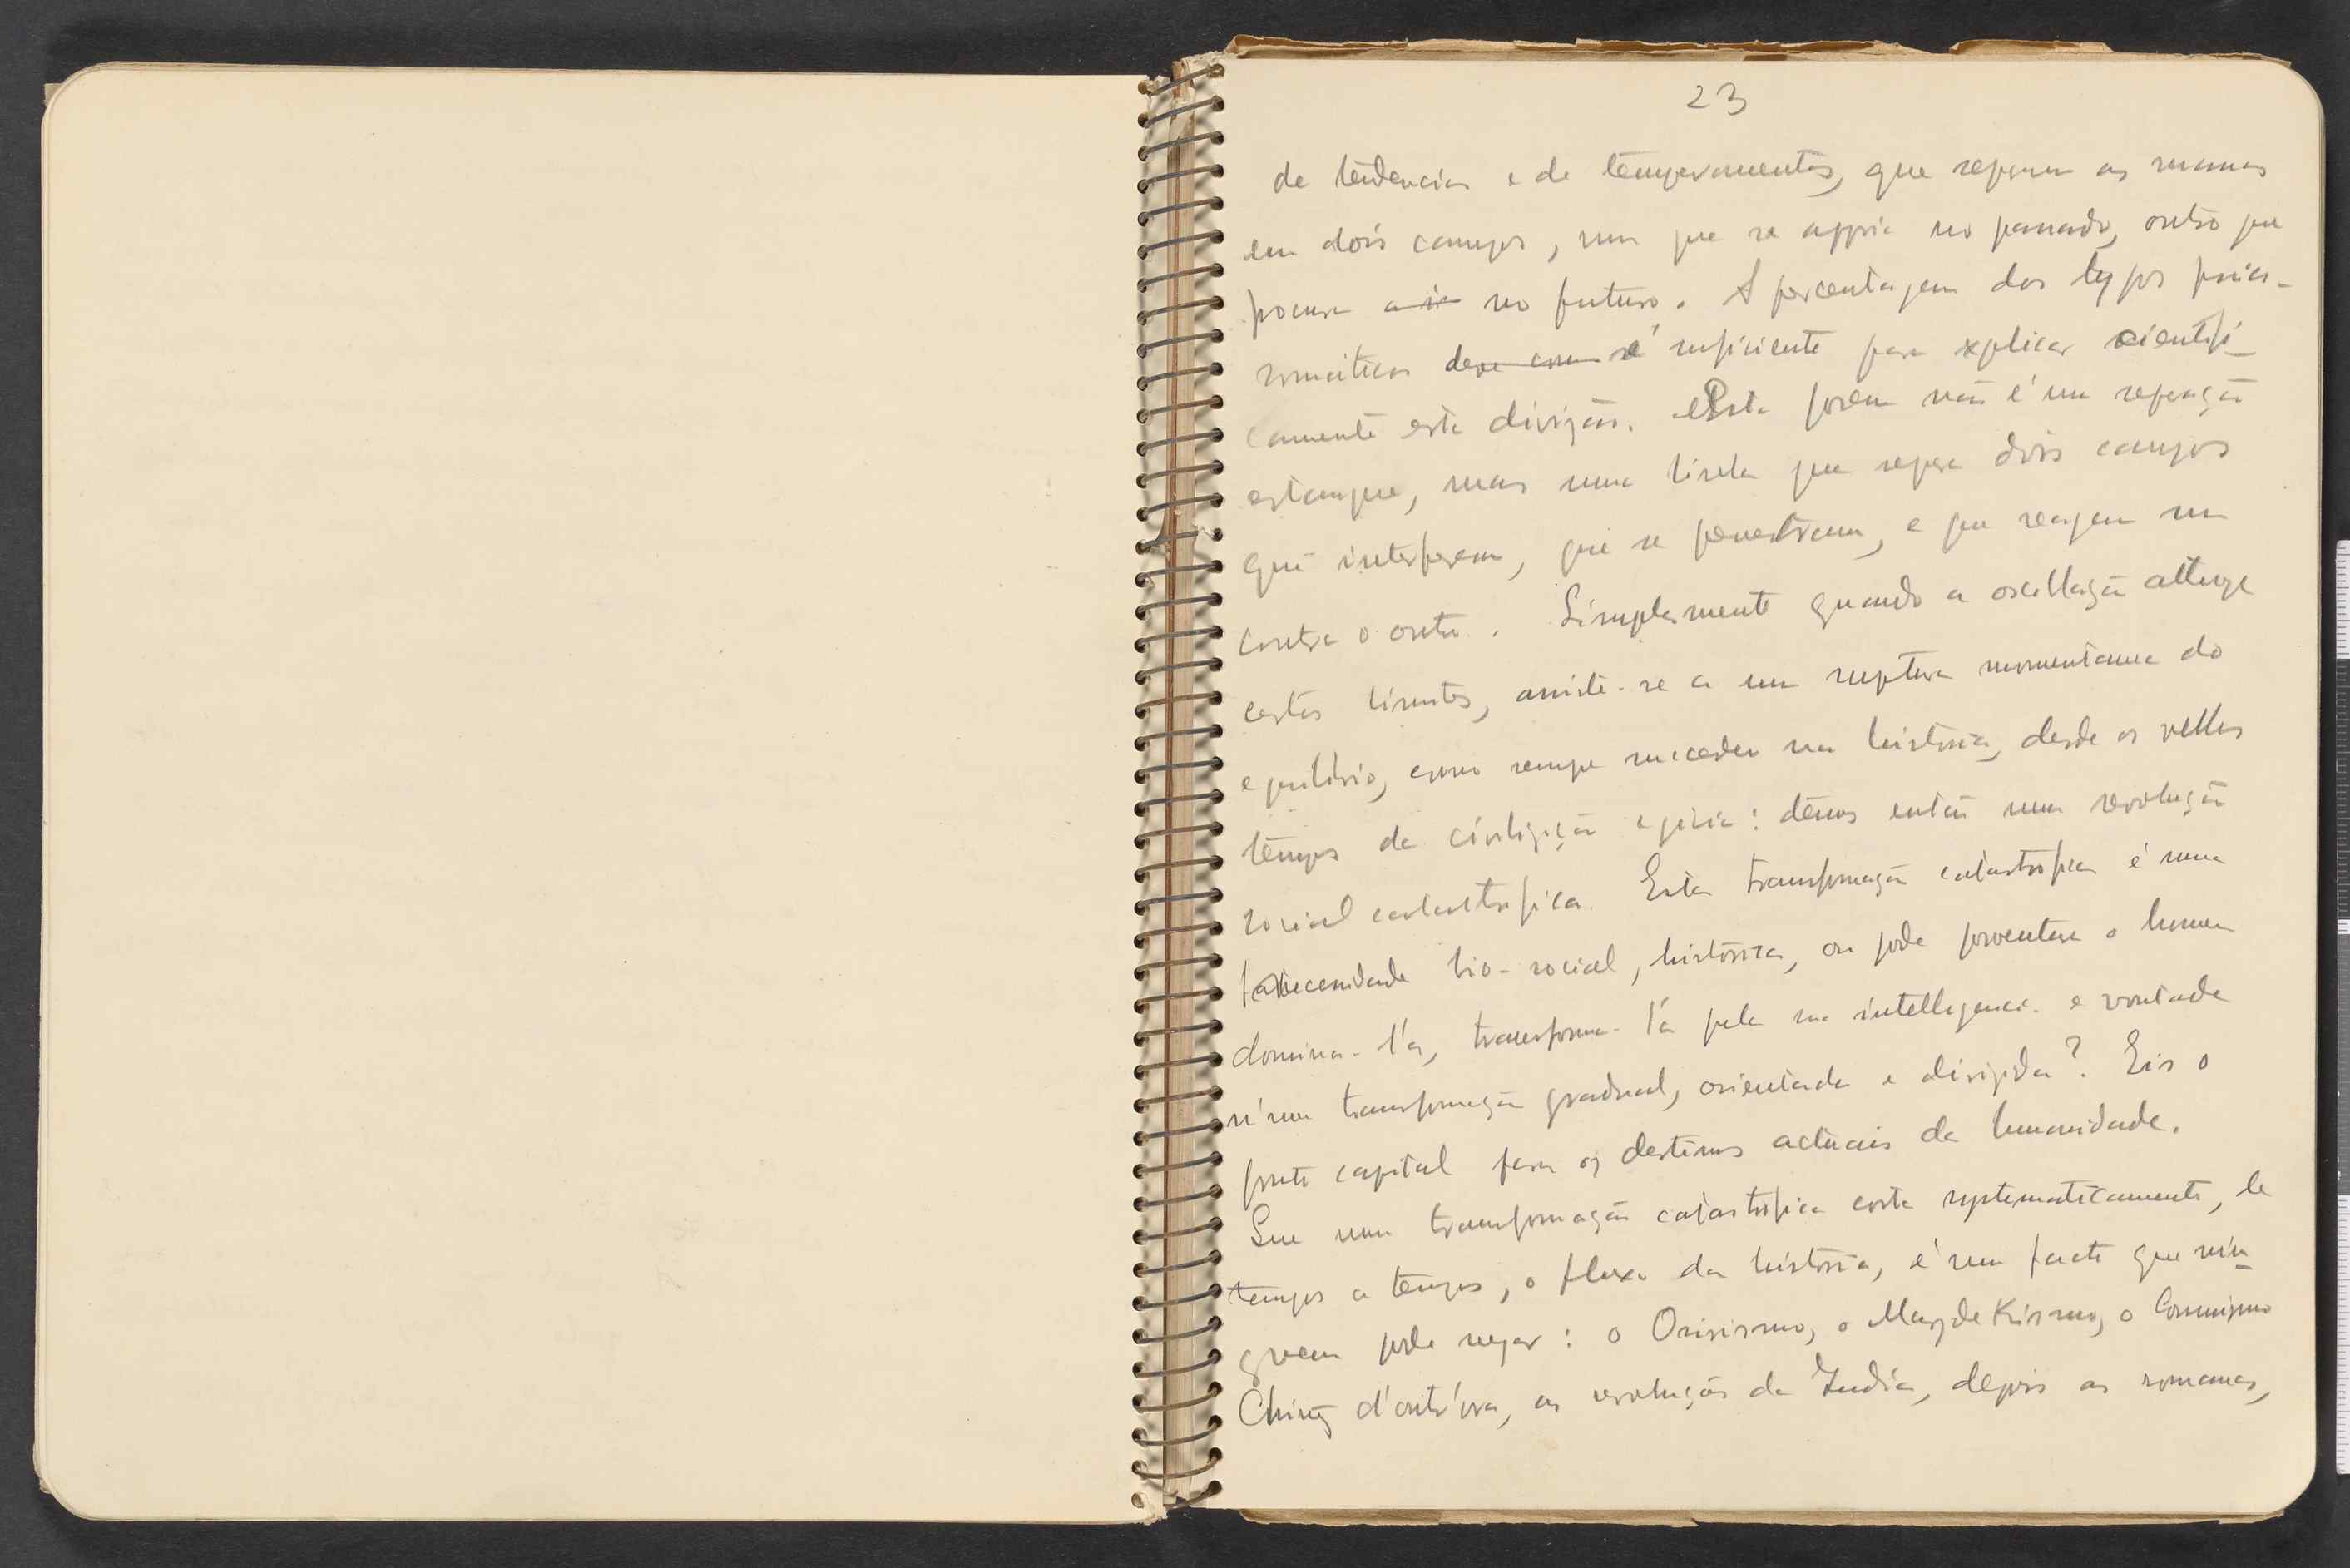 23
de tendencias e de temperamentos, que separam as massas
em dois campos, um que se appoia no passado, outro que
procura no futuro. A percentagem dos typos psico-
somaticos é sufficiente para explicar scientifi-
camente esta divizão. Esta porem não é um separação
estanque, mas uma linha que separa dois campos
que interferem, que se penetram, e que reagem um
contra o outro. Simplesmente quando a oscillação attinge
certos limites, assiste-se a um ruptura momentanea do
equilibrio, como sempre succedeu na historia, desde os velhos
tempos da civilização egipcia: temos então uma revolução
social catastrofica. Esta transformação catastrofica é uma
necessidade bio-social, historica, ou pode porventura o homem
domina-l'a, transforma-l'a pela sua intelligencia e vontade
n'uma transformação gradual, orientada e dirigida? Eis o
ponto capital para os destinos actuais da humanidade.
Que uma transformação catastrofica corta systematicamente, de
tempos a tempos, o fluxo da historia, é um facto que nin-
guem pode negar: o Osirismo, o Mazdekismo, o Comunismo
Chinez d'outr'ora, as revoluções da India, depois as romanas,